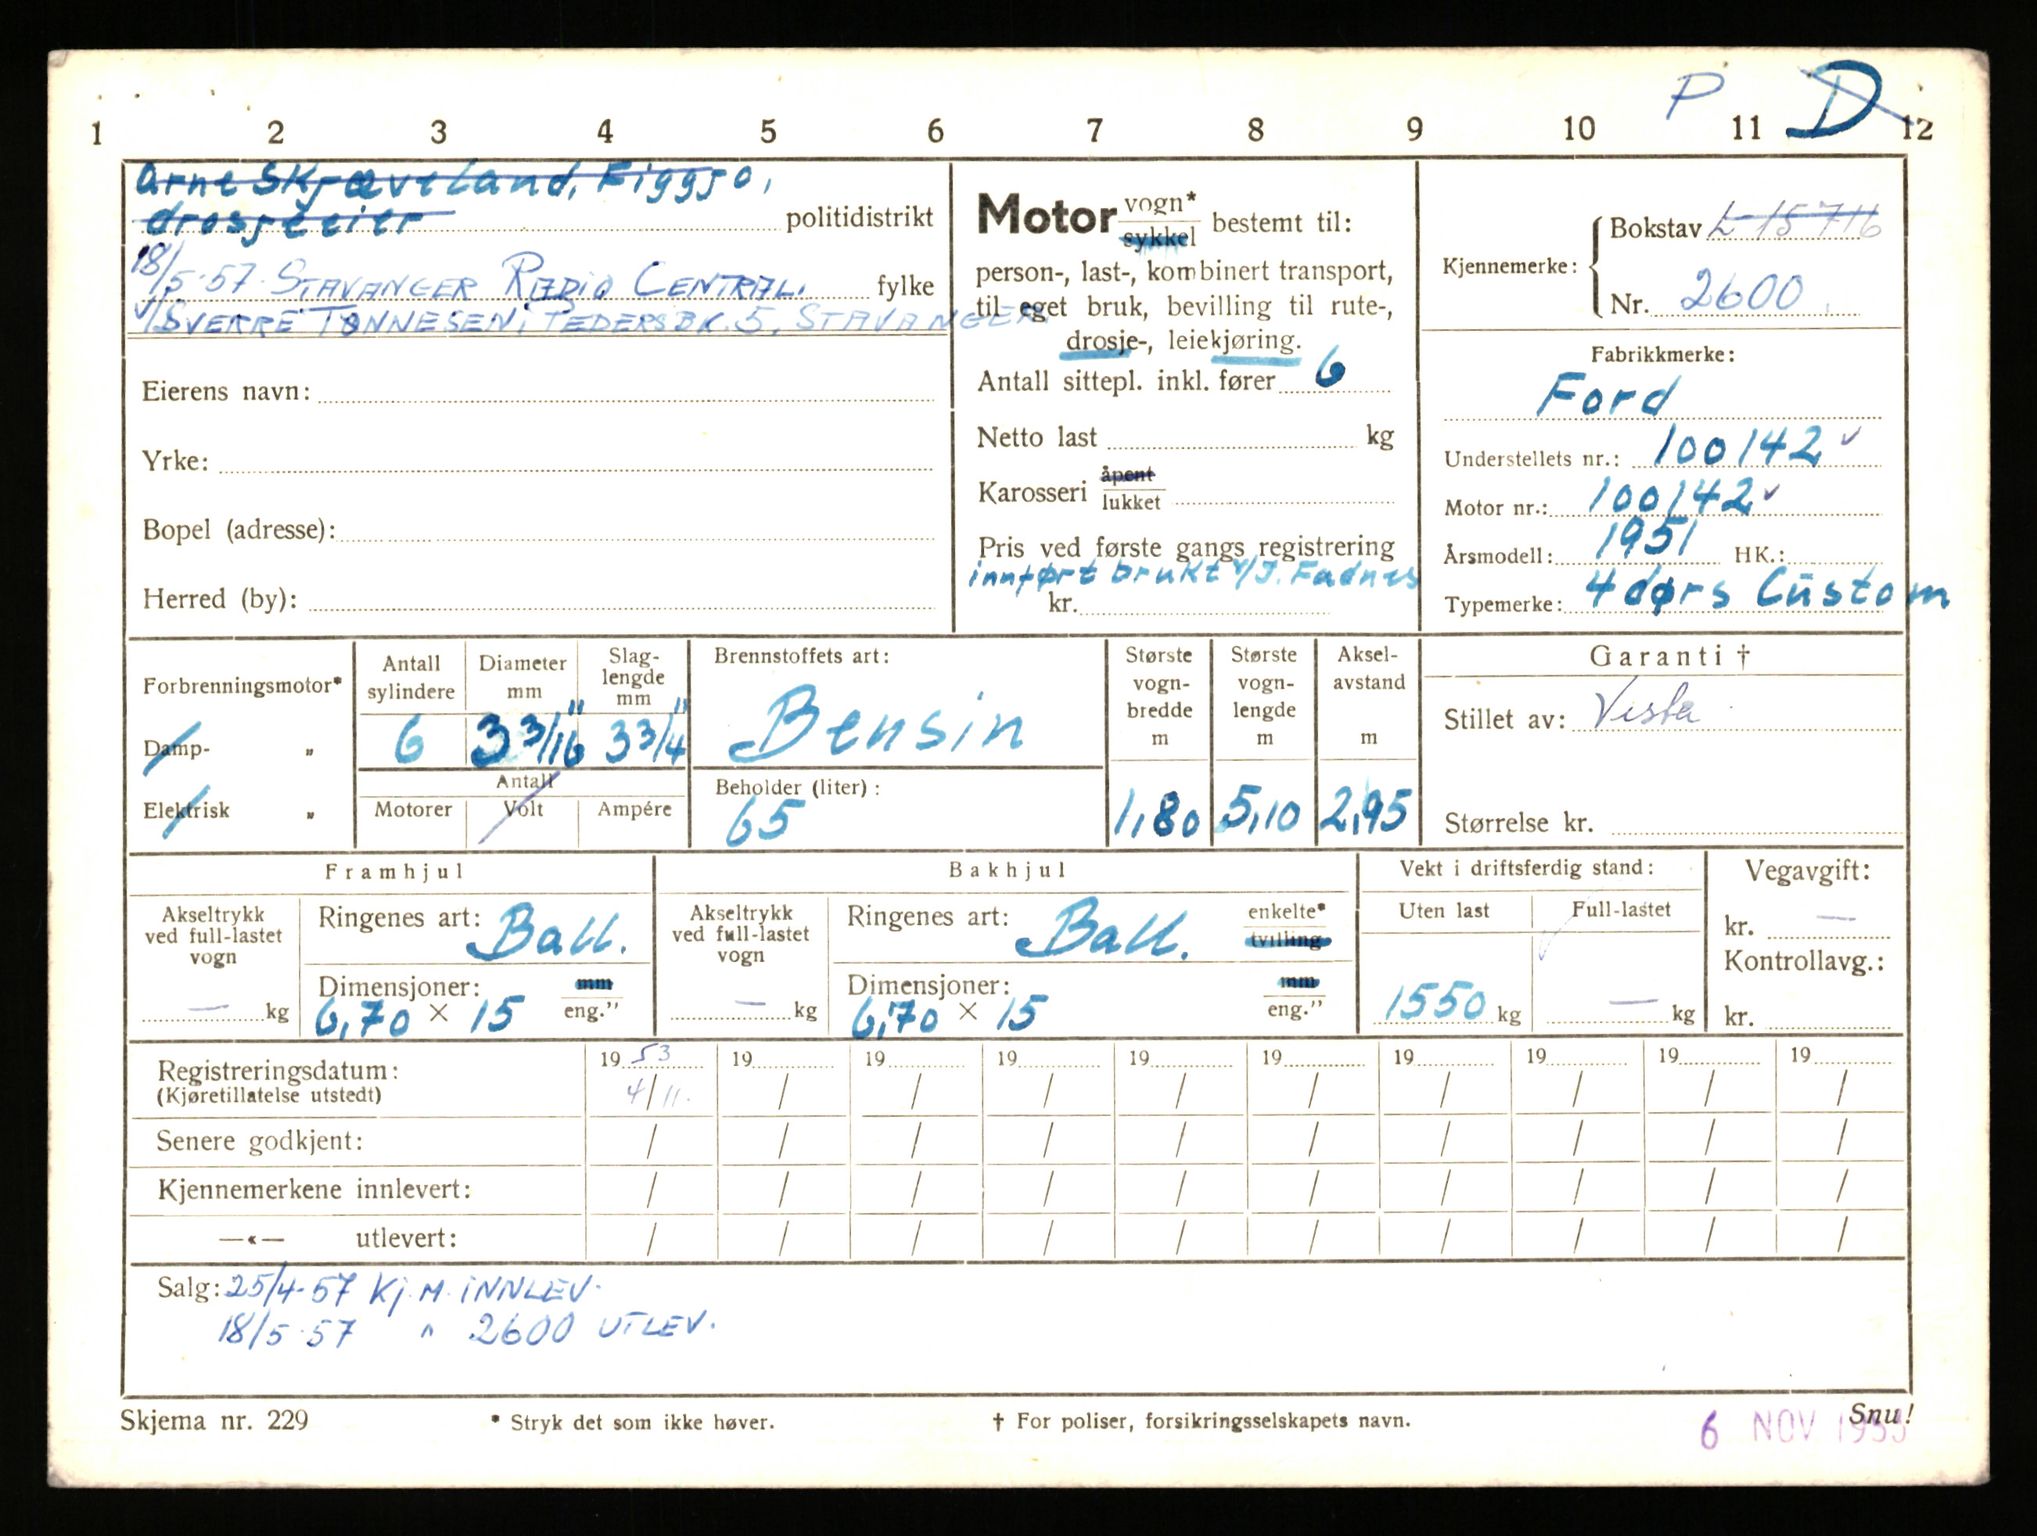 P D
1 2 3 4 5 6 7 8 9 10 11 12
Arne Skjæveland, Figgjo,
drosjeeier politidistrikt
18/5-57. STAVANGER RADIO CENTRAL. fylke
V/SVERRE TØNNESEN, PEDERSBK. 5, STAVANGER.
Eierens navn:
Yrke:
Bopel (adresse):
Herred (by):
Motor vogn* sykkel bestemt til:
person-, last-, kombinert transport,
til eget bruk, bevilling til rute-,
drosje-, leiekjøring.
Antall sittepl. inkl. fører 6
Netto last kg
Karosseri åpent lukket
Pris ved første gangs registrering
innført brukt v/J. Fadnes
kr.
Kjennemerke: Bokstav L-15716
Nr. 2600
Fabrikkmerke:
Ford
Understellets nr.: 100142 ✓
Motor nr.: 100142 ✓
Årsmodell: 1951 HK.:
Typemerke: 4 dørs Custom
Forbrenningsmotor*
Damp- „
Elektrisk „
Antall sylindere
6
Diameter mm
3 3/16"
Slaglengde mm
3 3/4"
Antall
Motorer Volt Ampére
Brennstoffets art:
Bensin
Beholder (liter):
65
Største vognbredde m
1,80
Største vognlengde m
5,10
Akselavstand m
2,95
Garanti †
Stillet av: Vesta
Størrelse kr.
Framhjul
Akseltrykk
ved full-lastet
vogn
— kg
Ringenes art: Ball.
Dimensjoner: mm
6,70 × 15 eng."
Bakhjul
Akseltrykk
ved full-lastet
vogn
— kg
Ringenes art: Ball. enkelte* tvilling
Dimensjoner: mm
6,70 × 15 eng."
Vekt i driftsferdig stand:
Uten last Full-lastet
1550 kg — kg
Vegavgift:
kr. —
Kontrollavg.:
kr.
Registreringsdatum: 19 53 19 19 19 19 19 19 19 19 19
(Kjøretillatelse utstedt) 4/11. / / / / / / / / /
Senere godkjent: / / / / / / / / / /
Kjennemerkene innlevert: / / / / / / / / / /
—«— utlevert: / / / / / / / / / /
Salg: 25/4-57 Kj.M. INNLEV.
18/5-57 " 2600 UTLEV.
Skjema nr. 229 * Stryk det som ikke høver. † For poliser, forsikringsselskapets navn. Snu!
6 NOV 1953